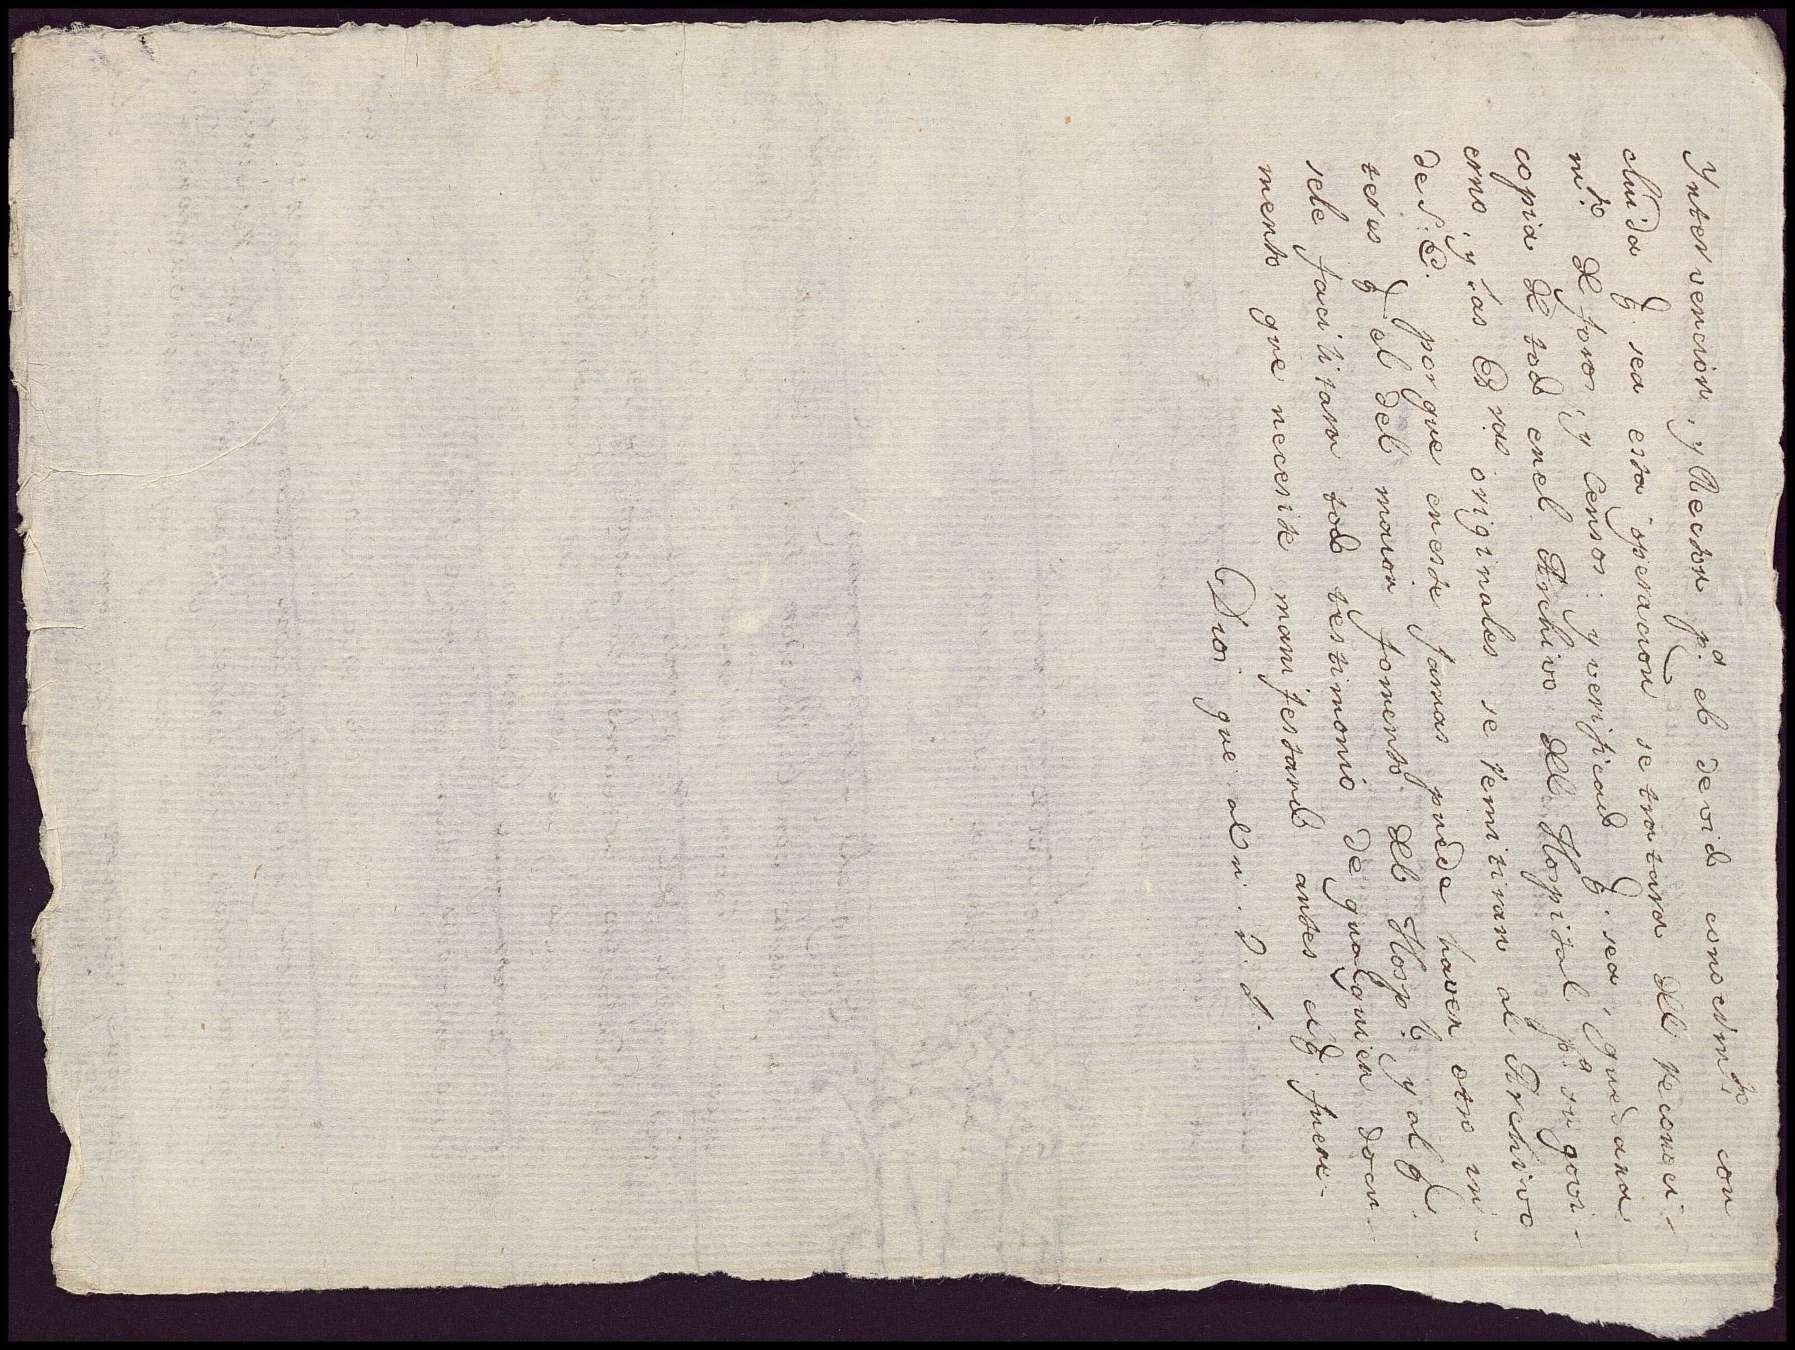 Yntervencion, y Recton p.ª el devido conocim.to con
cluida q. sea esta operacion se tratara del reconoci-
m.to de foros, y Censos: y verificado q. sea, quedara
copia de todo enel Archivo del Hospital p.ª su govi-
erno, y las Es.ras originales se remitiran al Archivo
de S: E. porque eneste jamas puede haver otro in-
teres q. el del maior fomento del Hosp.l y al q.
sele facilitara todo testimonio de qualquier docu-
mento que necesite manifestando antes elq. fuere-
Dios que a V. S.